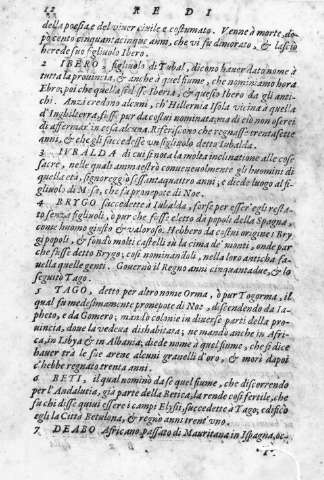 12 RE DI
della poesia, e del viuer ciuile e costumato. Venne à morte, do-
po cento cinquantacinque anni, che vi fu dimorato, & lasciò
herede suo figliuolo Ibero.
2 IBERO, figliuolo di Tubal, dicono hauer dato nome à
tutta la prouincia, & anche à quel fiume, che nominiamo hora
Ebro, poi che quella fosse Iberia, & questo Ibero da gli anti-
chi. Anzi credino alcuni, ch'Hillernia Isola vicina à quella
d'Inghilterra, fosse pur da costui nominata; ma di ciò non oserei
di affermar in ciò alcuna. Riferiscono che regnasse trentasette
anni, & che gli succedesse vn figliuolo detto Iubalda.
3 IVBALDA di cui si nota la molta inclinatione alle cose
sacre, nelle quali ammaestrò conueneuolmente gli huomini di
quella età, signoreggiò sessantaquattro anni, e diede luogo al fi-
gliuolo di Musa, che fu pronepote di Noe.
4 BRYGO succedette à Iubalda, forse per esser'egli resta-
to senza figliuoli, o pur che fosse eletto da popoli della Spagna,
come huomo giusto & valoroso. Hebbero da costui origine i Bry
gi popoli, & fondò molti castelli sù la cima de' monti, onde par
che fusse detto Brygo; così nominandoli, nella loro antichi fa-
uella quelle genti. Gouernò il Regno anni cinquantadue, & lo
seguitò Tago.
5 TAGO, detto per altro nome Orma, ò pur Togorma, il
qual fu medesimamente pronepote di Noe, discendendo da Ia-
pheto, e da Gomero; mandò colonie in diuerse parti della pro-
uincia, doue la vedeua dishabitata; ne mandò anche in Afri-
ca, in Libya & in Albania; diede nome à quel fiume, che si dice
hauer trà le sue arene alcuni grauelli d'oro, & morì dapoi
c'hebbe regnato trenta anni.
6 BETI, il qual nominò da se quel fiume, che discorrendo
per l'Andalutia, già parte della Betica, la rende così fertile, che
fu chi disse quiui essere i campi Elysii, succedette à Tago, edificò
egli la Città Betulona, & regnò anni trent'vno.
7 DEABO Africano passato di Mauritana in Ispagna, oc-